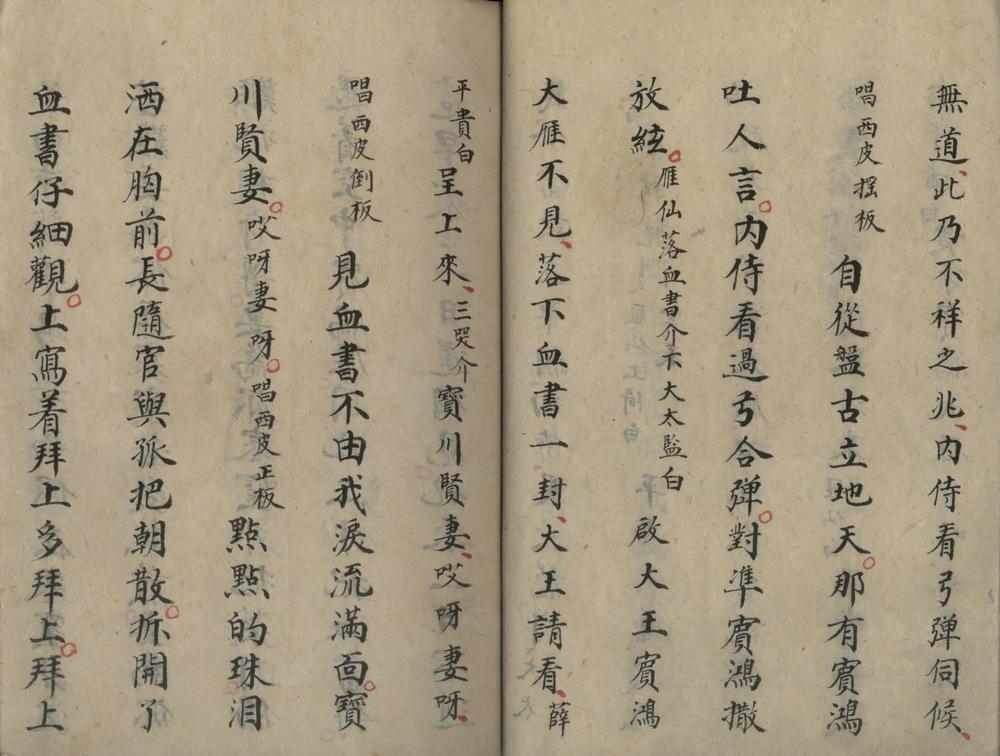 無道、此乃不祥之兆、内侍看弓弹伺候、
唱西皮摇板 自從盤古立地天。那有賔鴻
吐人言。内侍看過弓合弹。對凖賔鴻撒
放絃。雁仙落血書介下大太監白 啟大王賔鴻
大雁不見、落下血書一封、大王請看、薛
平貴白 呈上來、三哭介 寶川賢妻、哎呀妻呀、
唱西皮倒板 見血書不由我淚流滿面。寶
川賢妻。哎呀妻呀。唱西皮正板 點點的珠泪
洒在胸前。長隨官與孤把朝散。拆開了
血書仔細觀。上寫着拜上多拜上。拜上